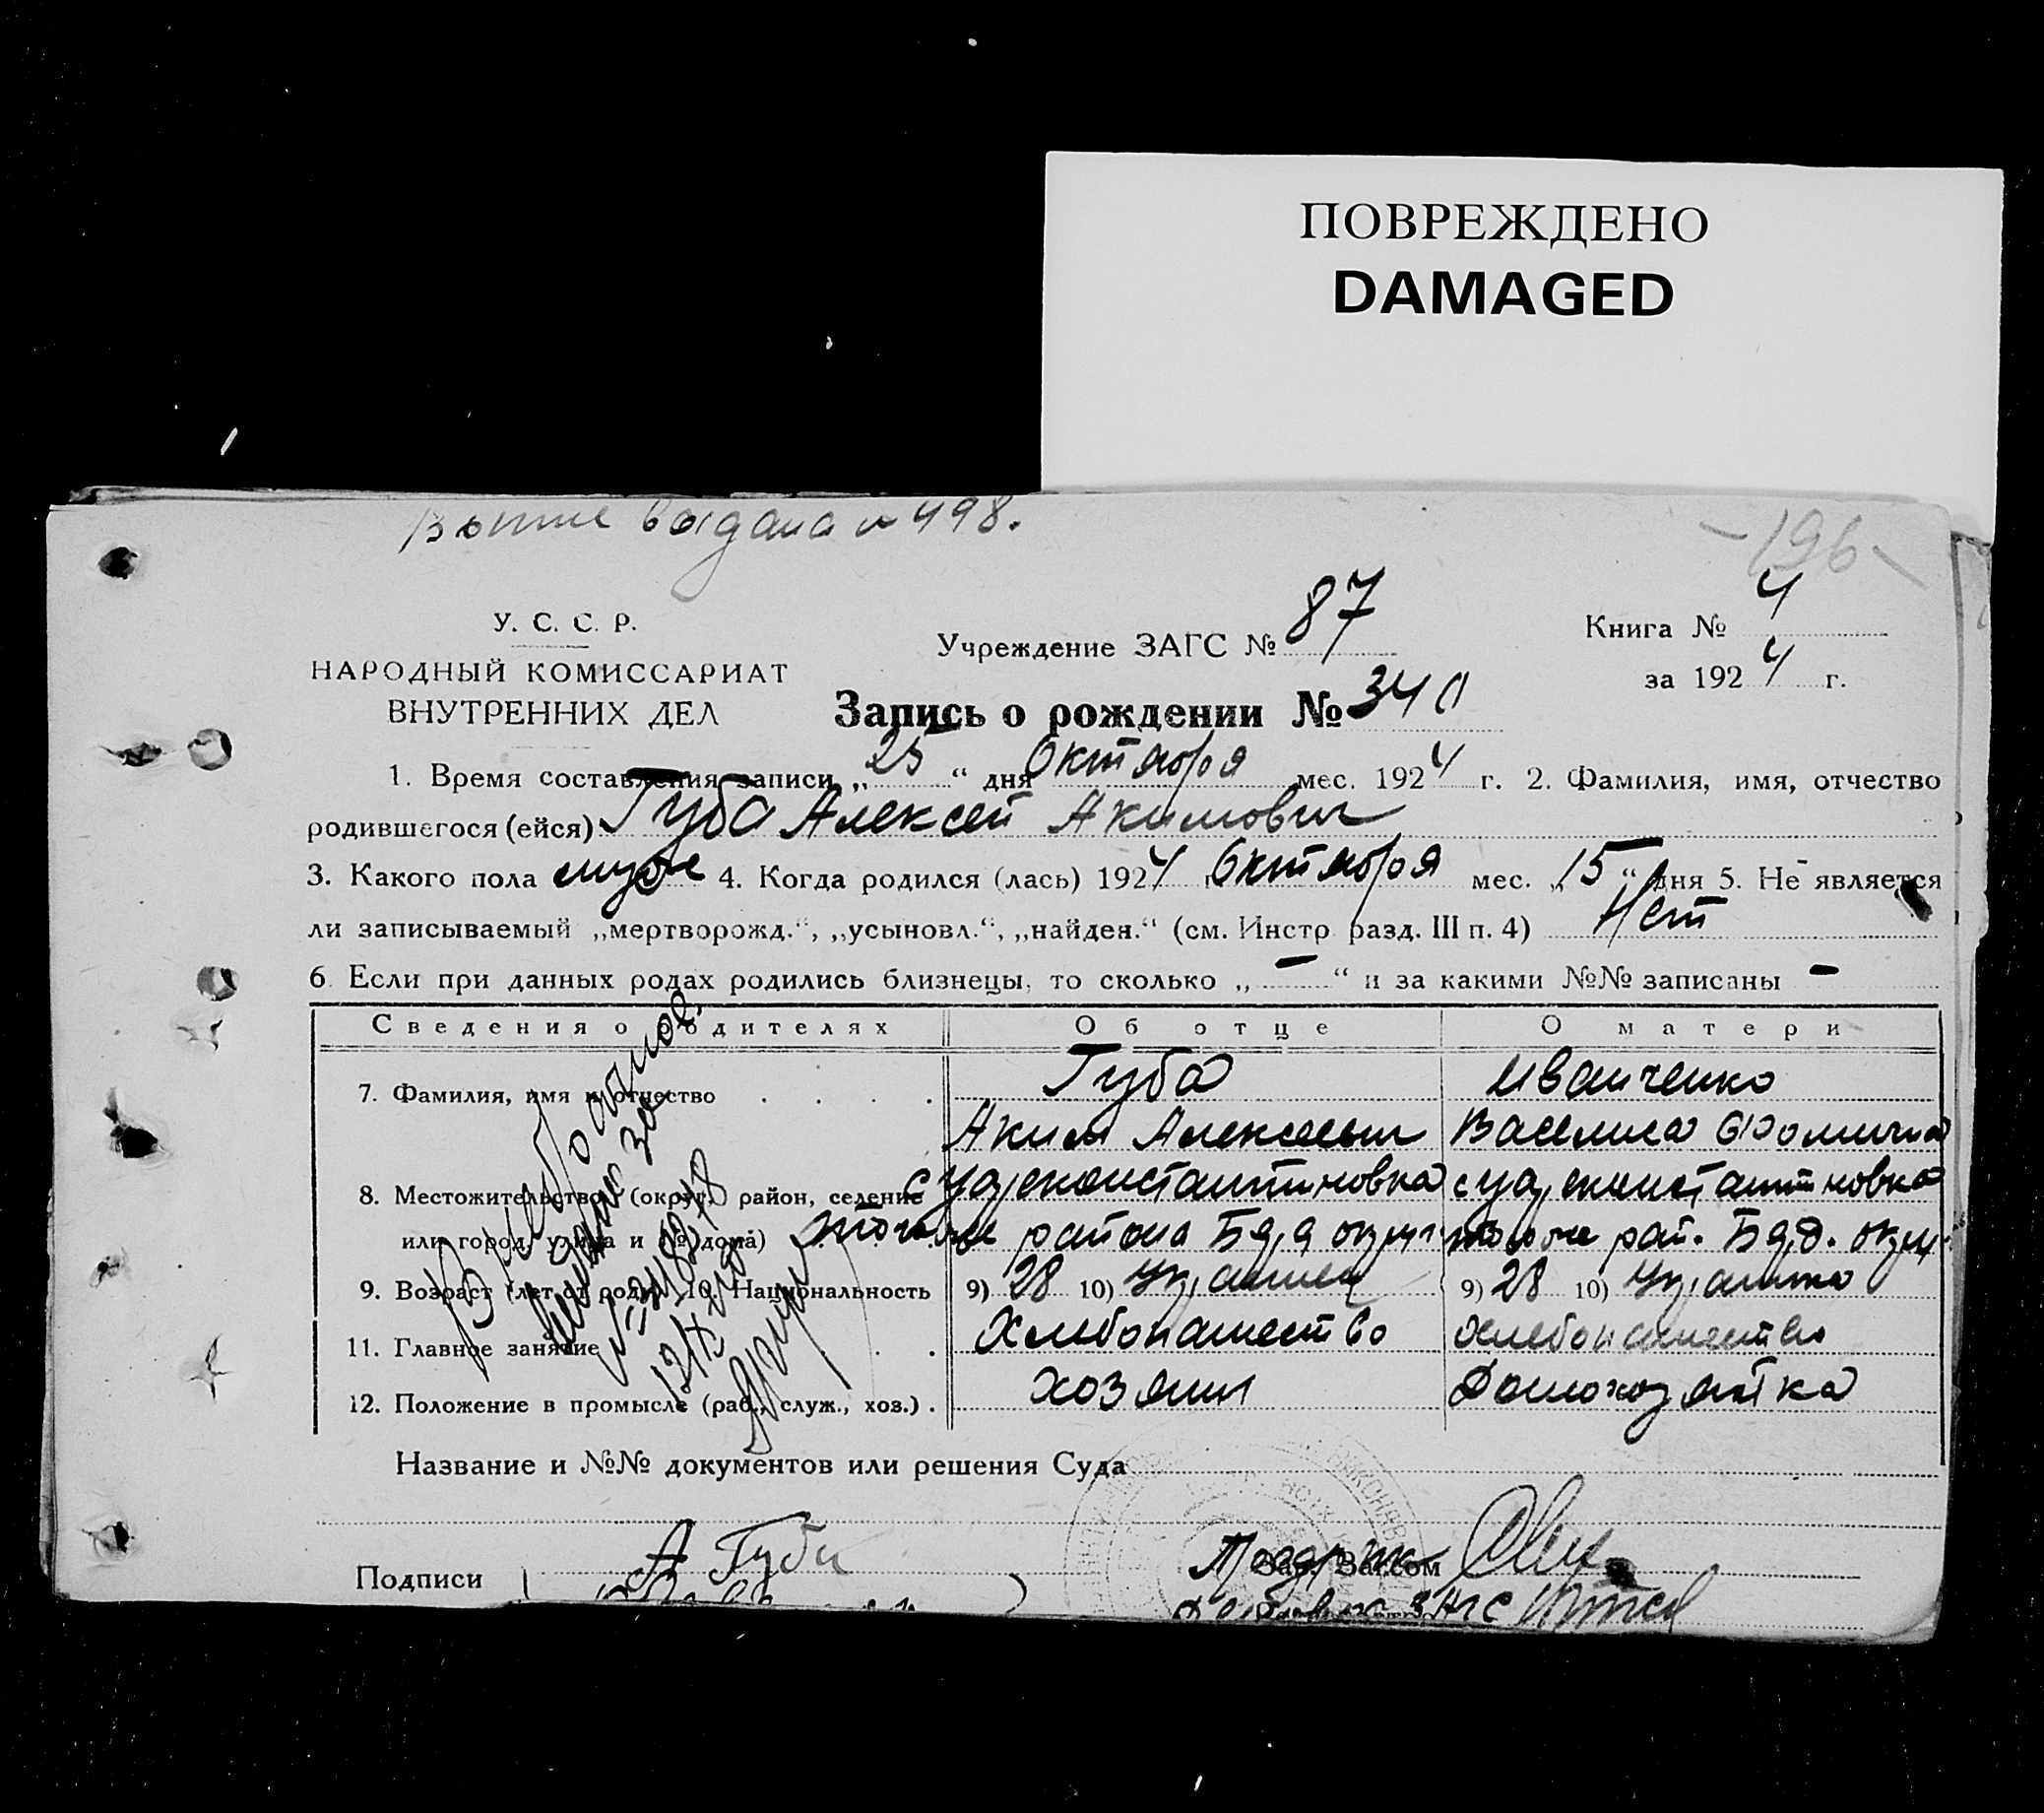 ПОВРЕЖДЕНО
DAMAGED
выдана № 498.
-196-
У. С. С. Р.
НАРОДНЫЙ КОМИССАРИАТ
ВНУТРЕННИХ ДЕЛ
Учреждение ЗАГС № 87
Книга № 4
за 1924 г.
Запись о рождении № 340
1. Время составления записи „25“ дня Октября мес. 1924 г. 2. Фамилия, имя, отчество
родившегося (ейся) Губа Алексей Акимович
3. Какого пола муж 4. Когда родился (лась) 1924 г. Октября мес. „15“ дня 5. Не является
ли записываемый „мертворожд.“, „усыновл.“, „найден.“ (см. Инстр разд. III п. 4) Нет
6. Если при данных родах родились близнецы, то сколько „ — “ и за какими №№ записаны —
Сведения о родителях Об отце О матери
7. Фамилия, имя и отчество . . . . Губа Иванченко
Аким Алексеевич Василиса
8. Местожительство (округ, район, селение
или город, улица и № дома) района окр. рай. окр.
9. Возраст (лет от роду) 10. Национальность 9) 28 10) 9) 28 10)
11. Главное занятие . . Хлебопашество хлебопашество
12. Положение в промысле (раб., служ., хоз.) . хозяин Домохозяйка
Название и №№ документов или решения Суда
Подписи А Губа Зав. Загсом